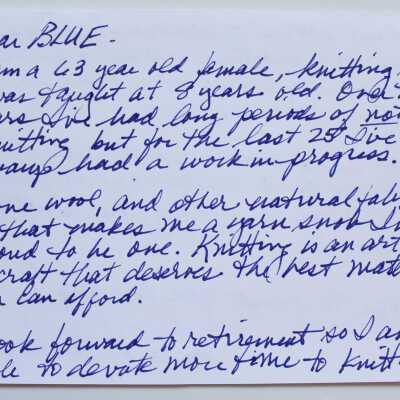 ar BLUE-
m a 63 year old female, knitting
was taught at 8 years old. Over
ars I've had long periods of not
nitting but for the last 25 I've
ways had a work in progress.
one wool, and other natural fab
that makes me a yarn snob I
oud to be one. Knitting is an art
craft that deserves the best mate
can afford.
ook forward to retirement so I a
le to devote more time to knitt